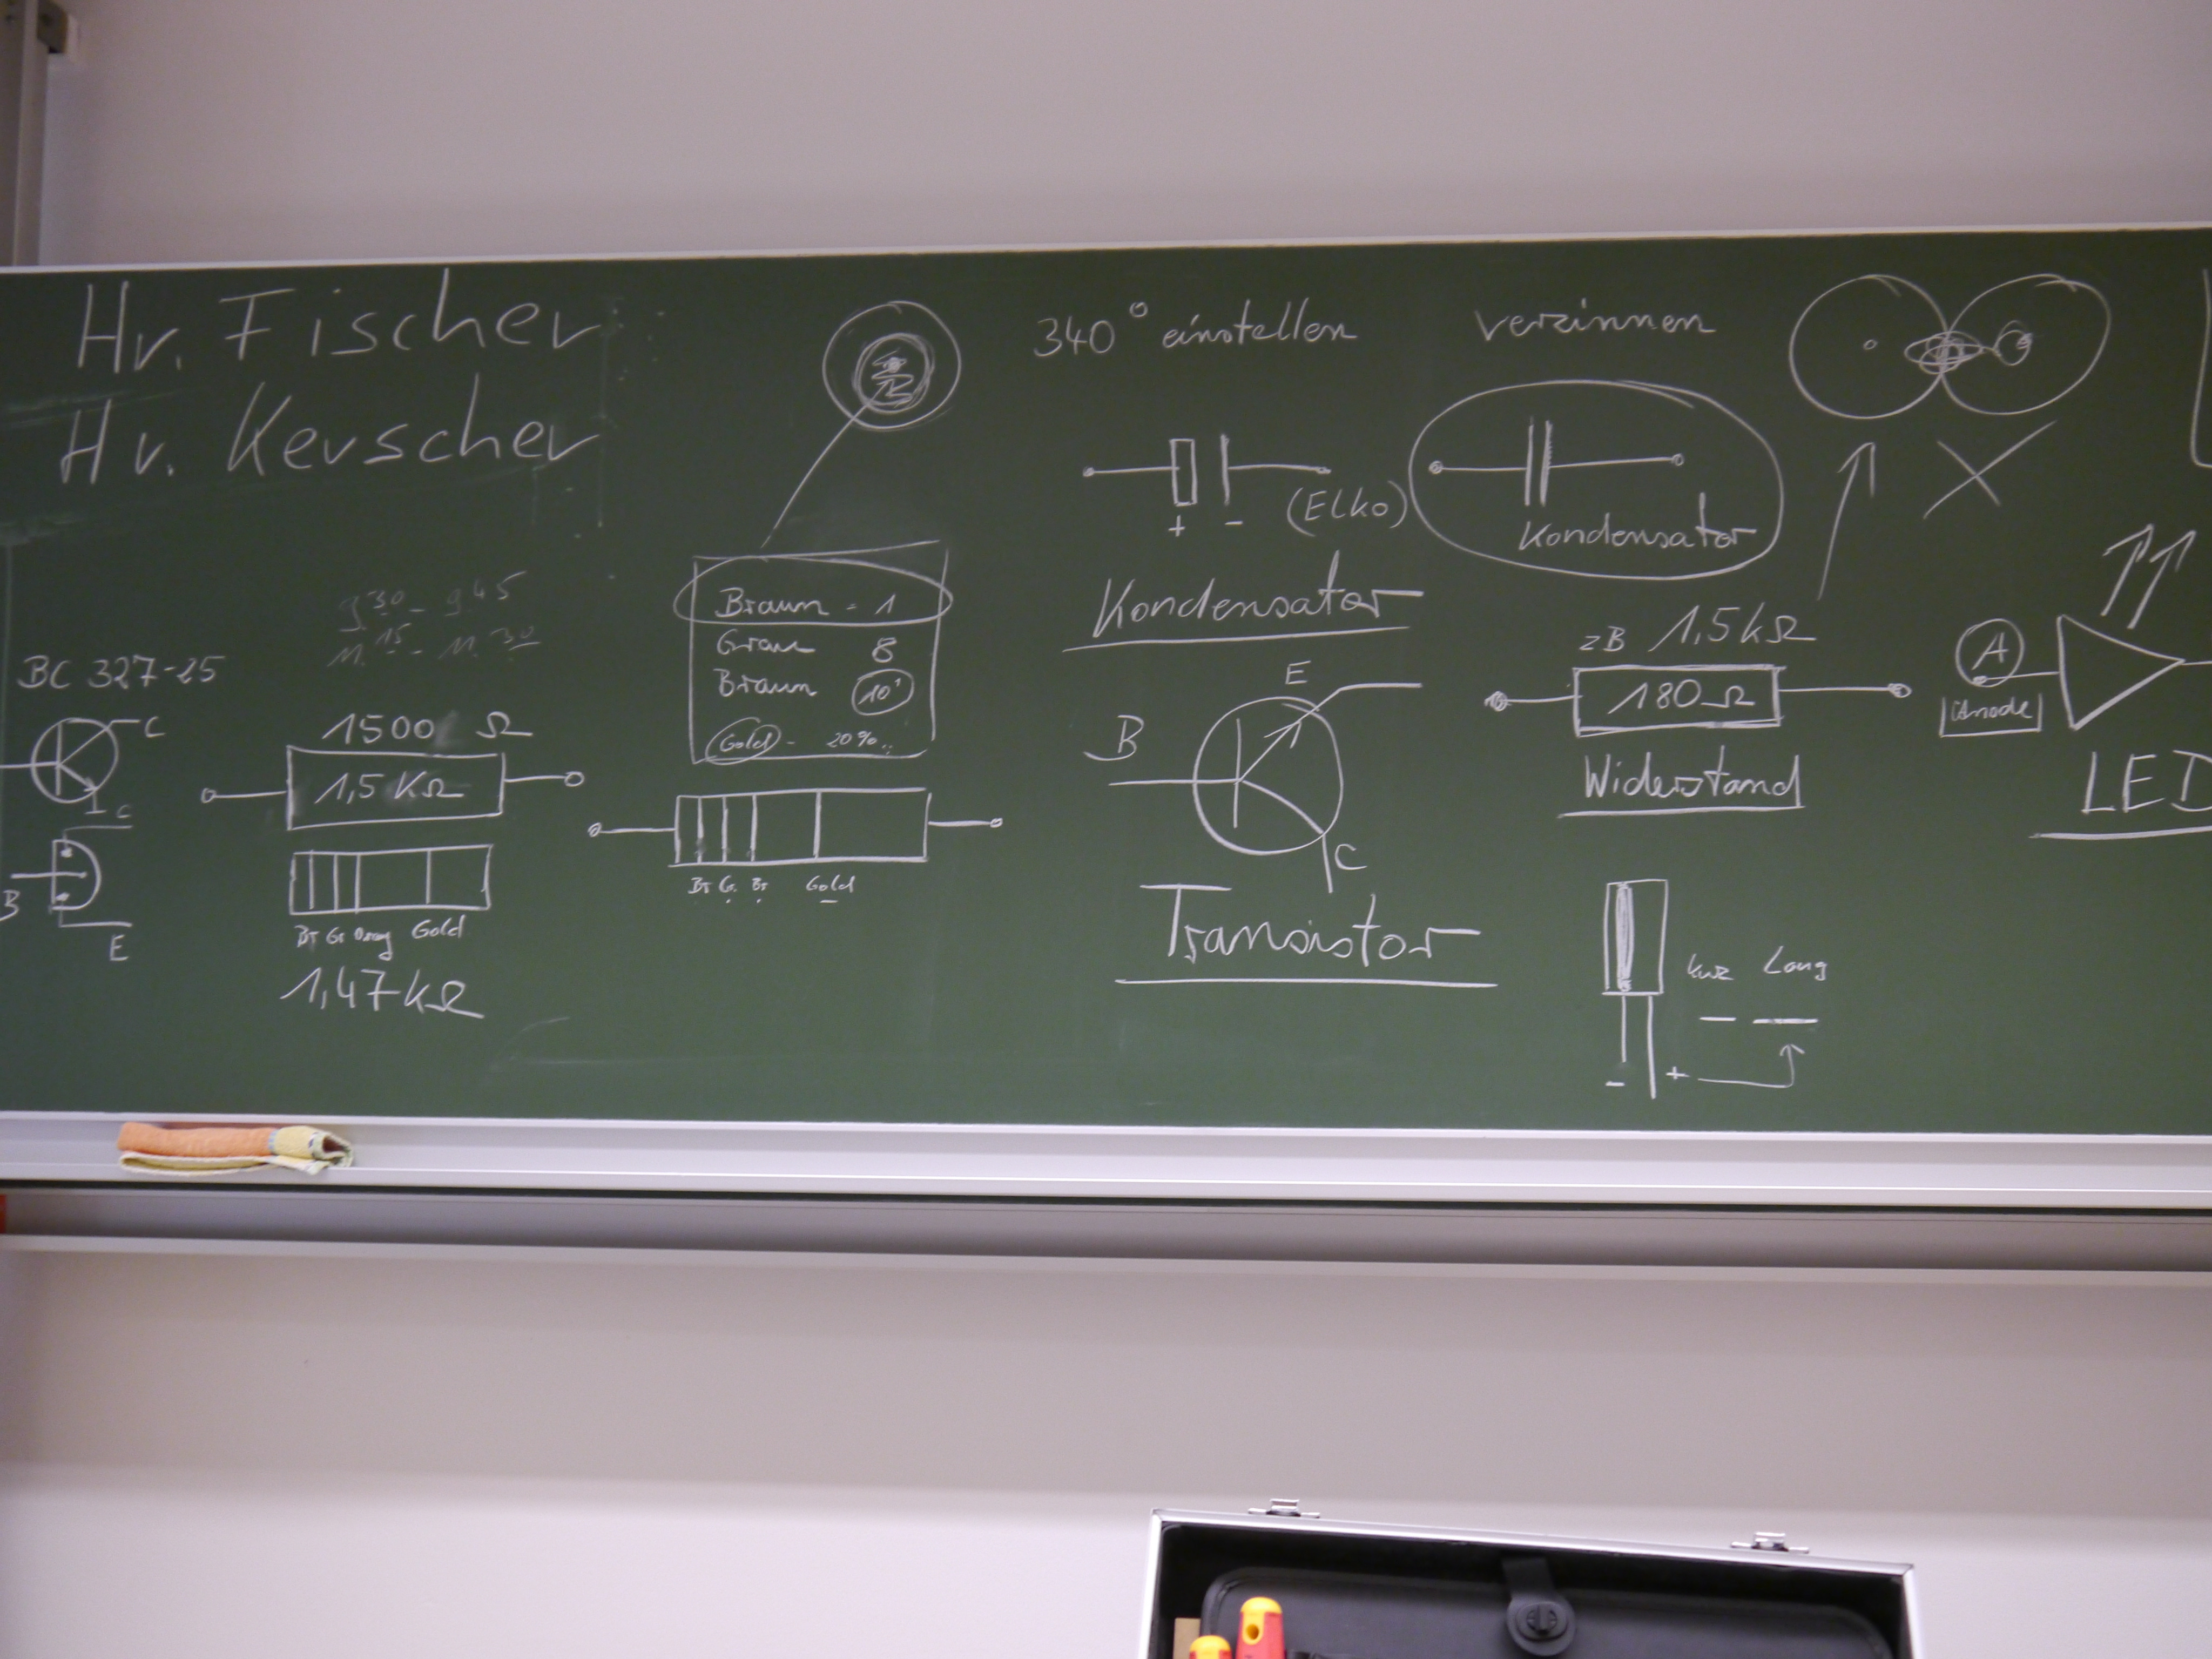 Hr. Fischer
Hr. Kerscher
340° einstellen
verzinnen
+ - (Elko)
Kondensator
Kondensator
9.30 - 9.45
11.15 - 11.30
BC 327-25
C
C
B
E
1500 Ω
1,5 KΩ
Br Gr Orang Gold
1,47 kΩ
Braun - 1
Grau 8
Braun 10¹
Gold - 20%..
Br Gr. Br Gold
E
B
C
Transistor
zB 1,5 kΩ
180 Ω
Widerstand
A
Anode
LED
kurz Lang
- +